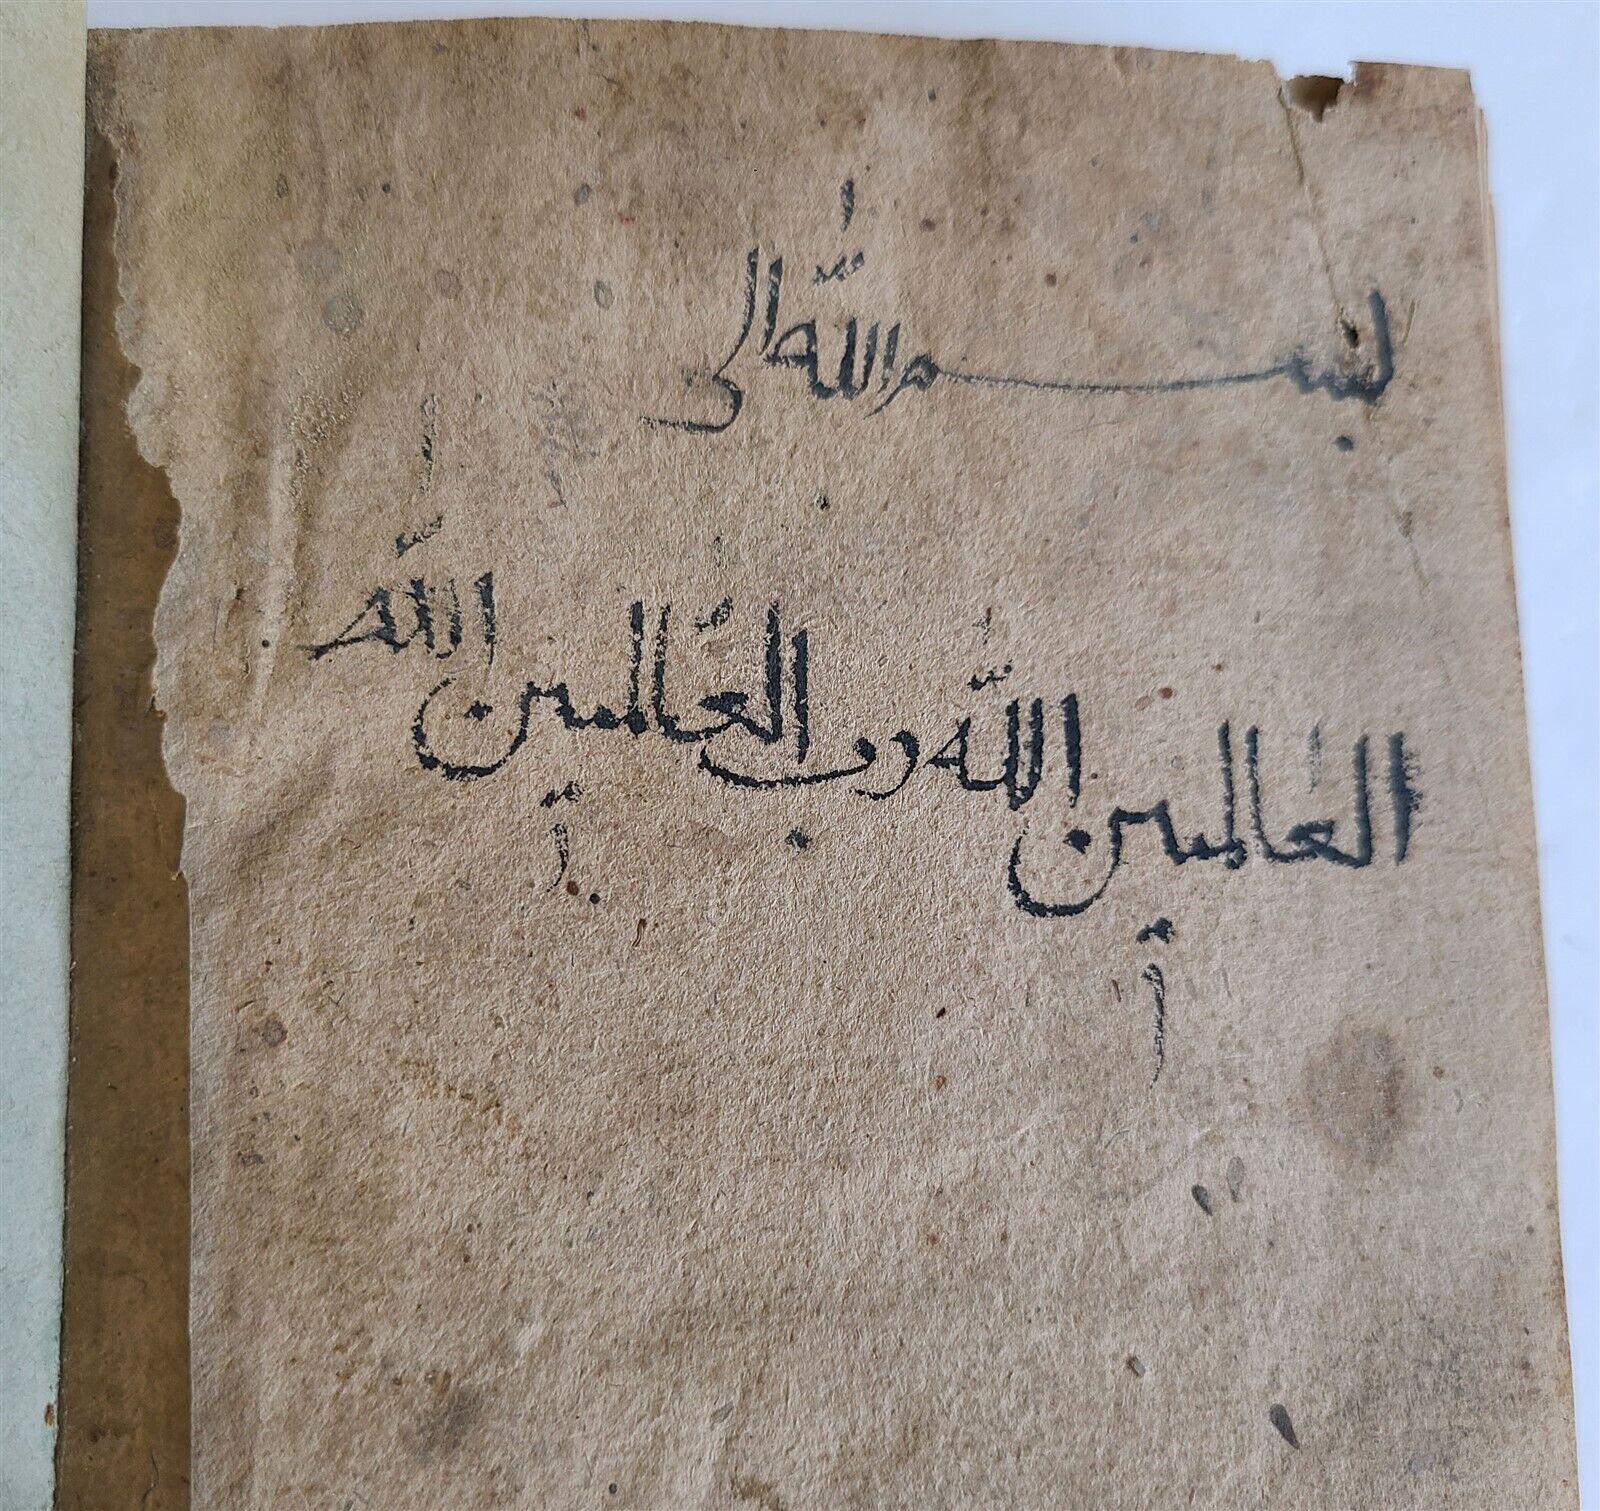 بسم الله الى
العالمين الله رب العالمين الله